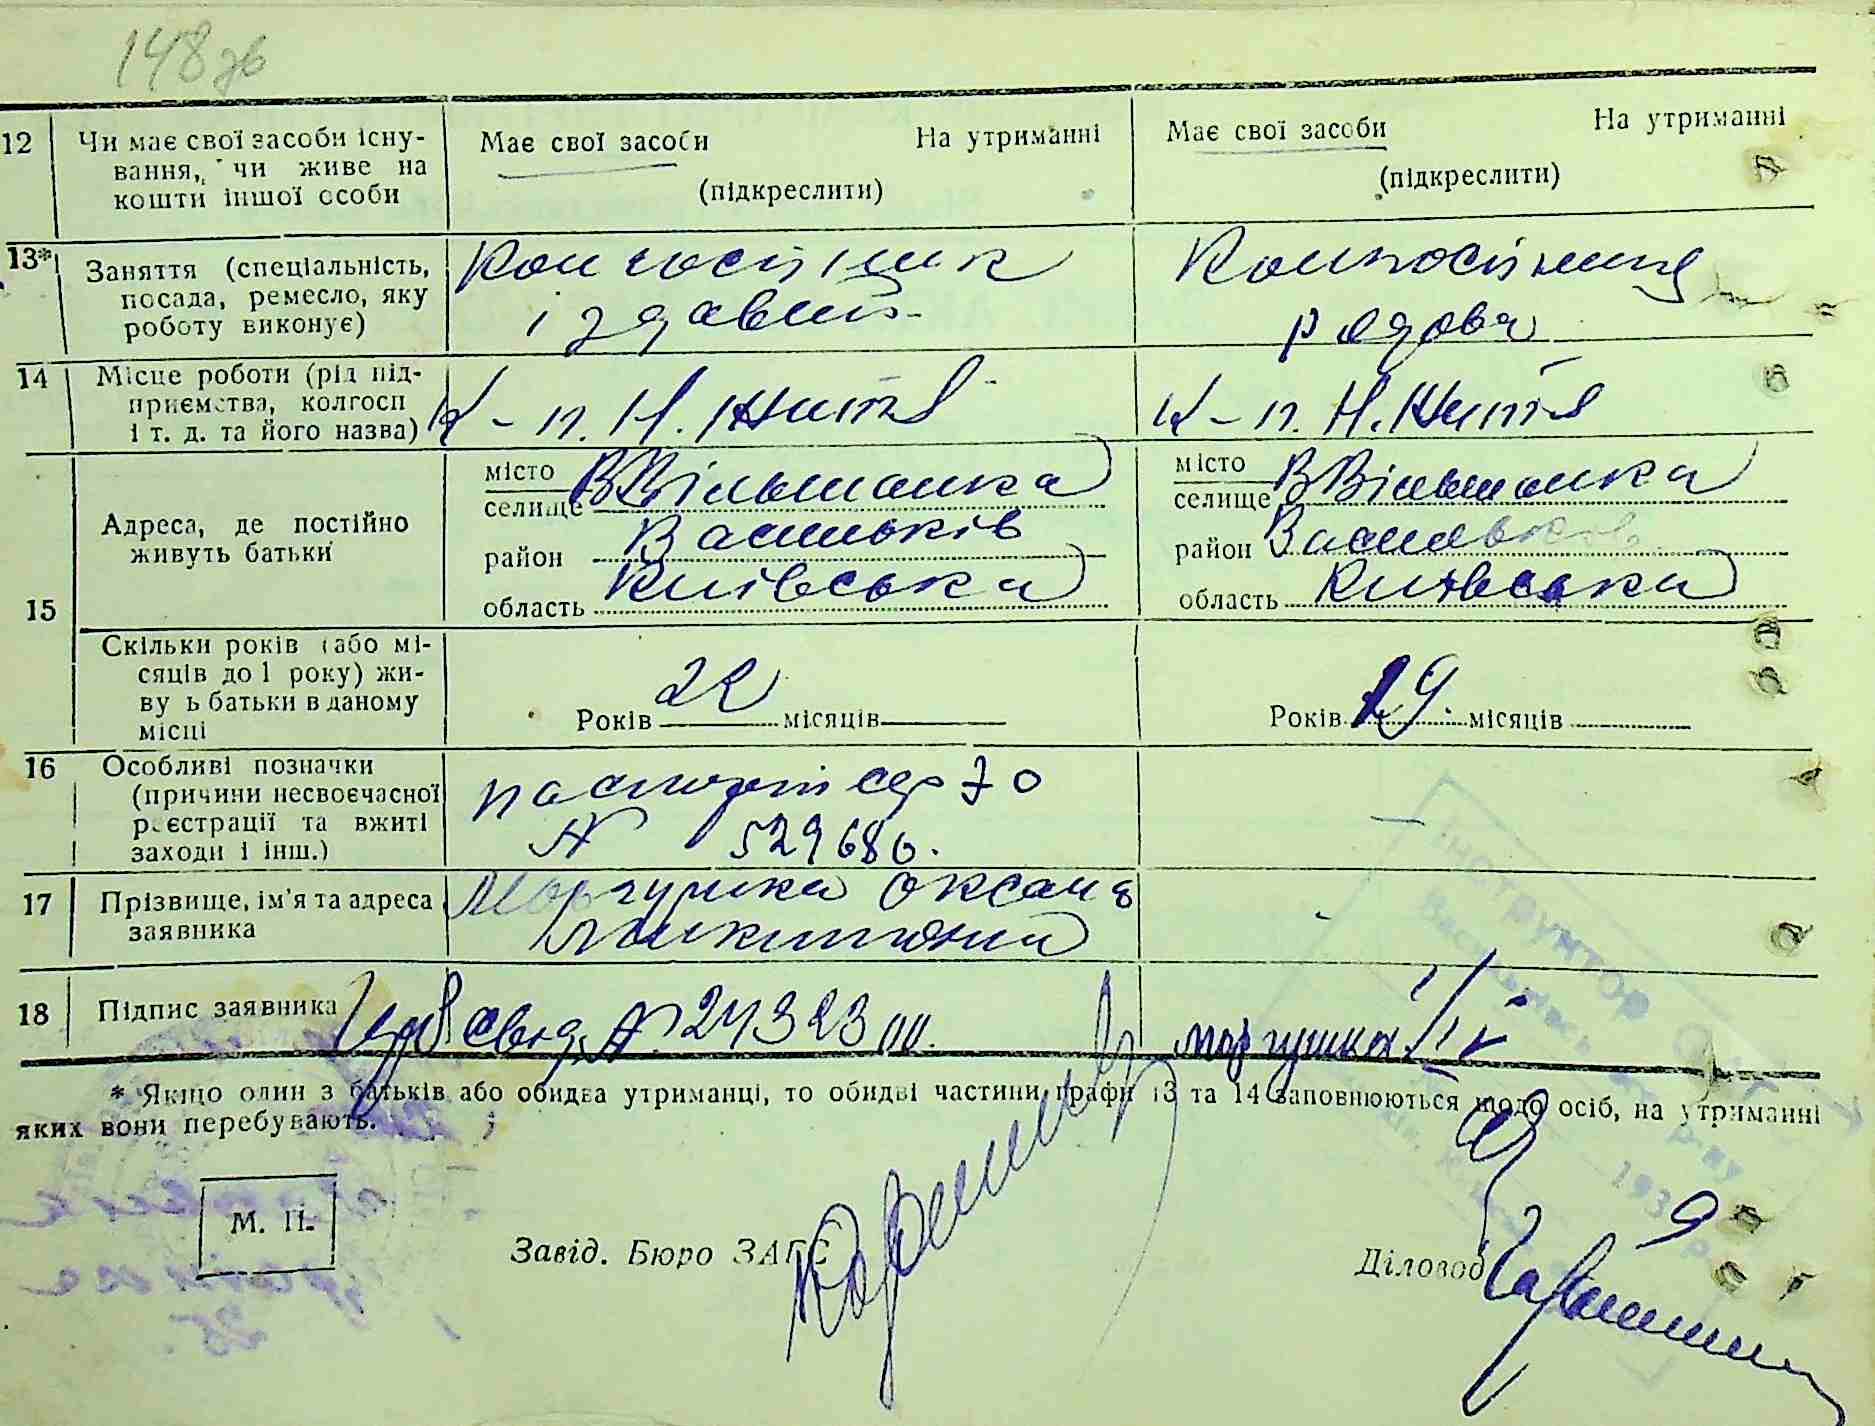 148 зв
12 Чи має свої засоби існу- Має свої засоби На утриманні Має свої засоби На утриманні
вання, чи живе на (підкреслити) (підкреслити)
кошти іншої особи
13* Заняття (спеціальність, Колгоспник Колгоспниця
посада, ремесло, яку їздовий рядова
роботу виконує)
14 Місце роботи (рід під-
приємства, колгосп К-п. Н. Життя К-п. Н. Життя
і т. д. та його назва)
15 Адреса, де постійно
живуть батьки
місто В Вільшанка місто В Вільшанка
селище селище
район Васильків район Васильків
область Київська область Київська
Скільки років (або мі-
сяців до 1 року) жи-
ву ь батьки в даному Років 22 місяців Років 19. місяців
місці
16 Особливі позначки паспорт сер 70
(причини несвоєчасної № 529680.
реєстрації та вжиті
заходи і інш.)
17 Прізвище, ім'я та адреса Моргушка Оксана
заявника Микитовна
18 Підпис заявника № 243233 Моргушка
* Якщо один з батьків або обидва утриманці, то обидві частини графи 13 та 14 заповнюються щодо осіб, на утриманні
яких вони перебувають.
М. П.
Завід. Бюро ЗАГС Діловод
Інструктор